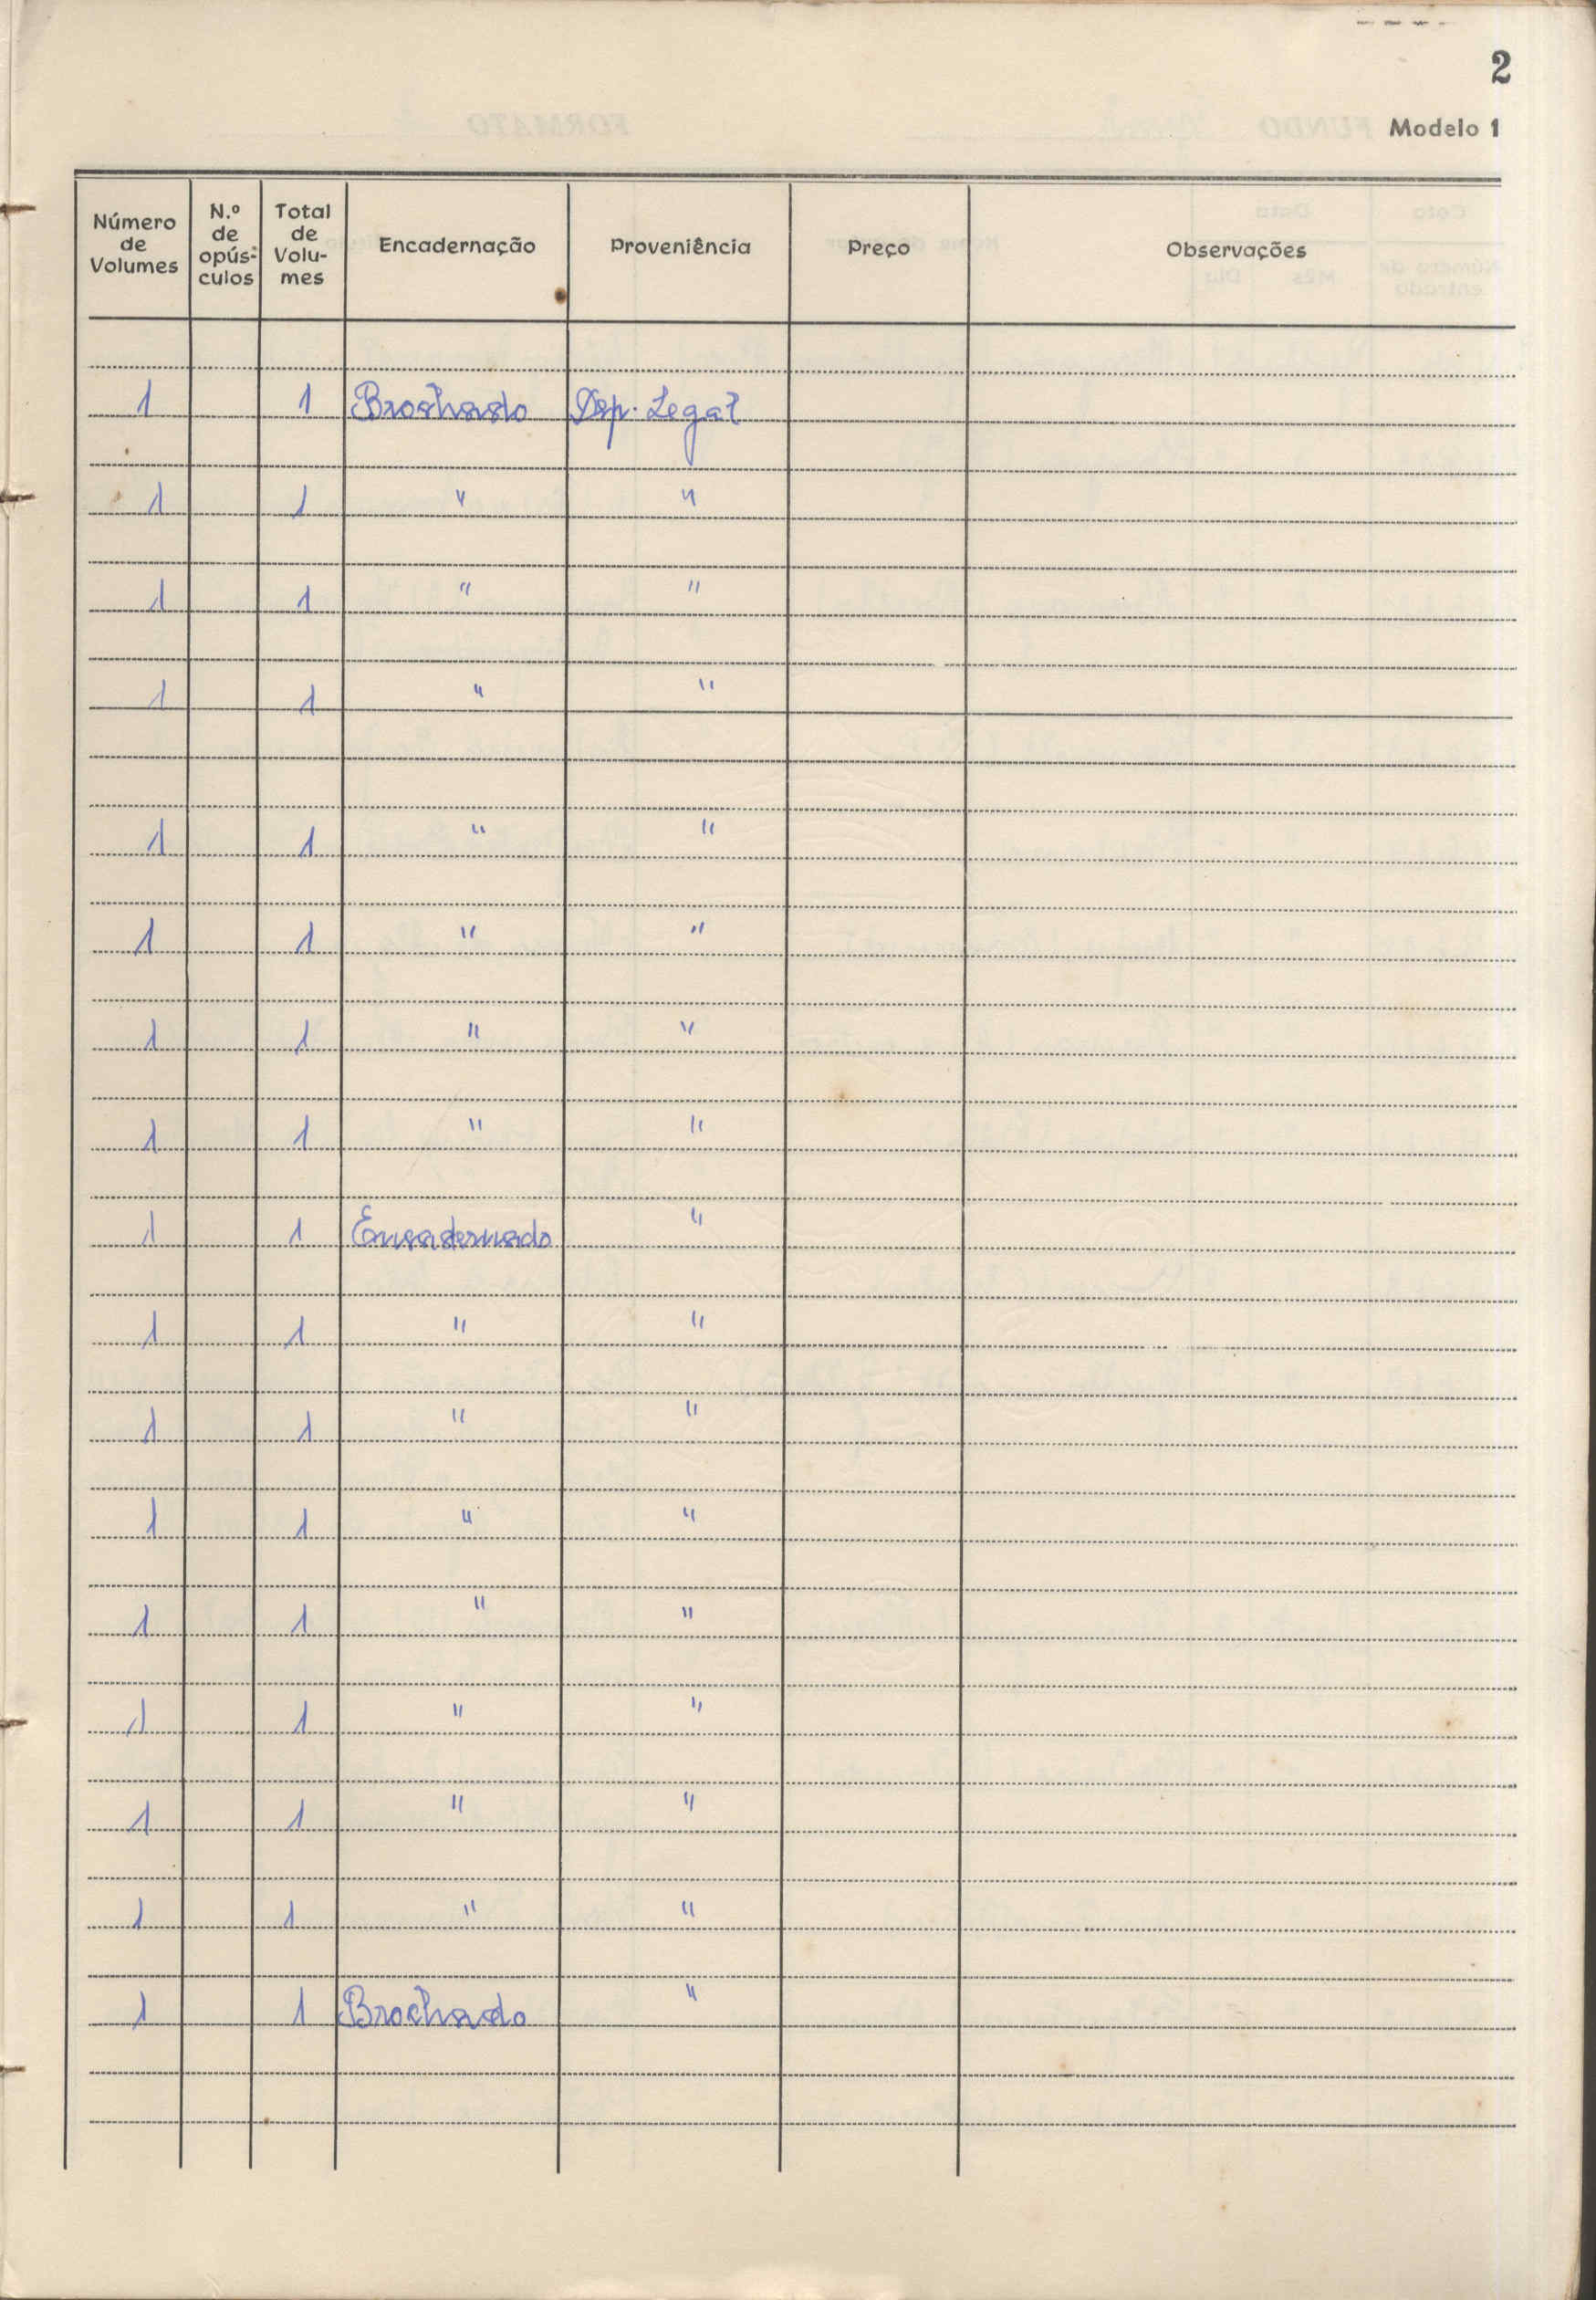 2
Modelo 1
Número de Volumes | N.º de opús-culos | Total de Volu-mes | Encadernação | Proveniência | Preço | Observações
1 | | 1 | Brochado | Dep. Legal
1 | | 1 | " | "
1 | | 1 | " | "
1 | | 1 | " | "
1 | | 1 | " | "
1 | | 1 | " | "
1 | | 1 | " | "
1 | | 1 | " | "
1 | | 1 | Encadernado | "
1 | | 1 | " | "
1 | | 1 | " | "
1 | | 1 | " | "
1 | | 1 | " | "
1 | | 1 | " | "
1 | | 1 | " | "
1 | | 1 | " | "
1 | | 1 | Brochado | "